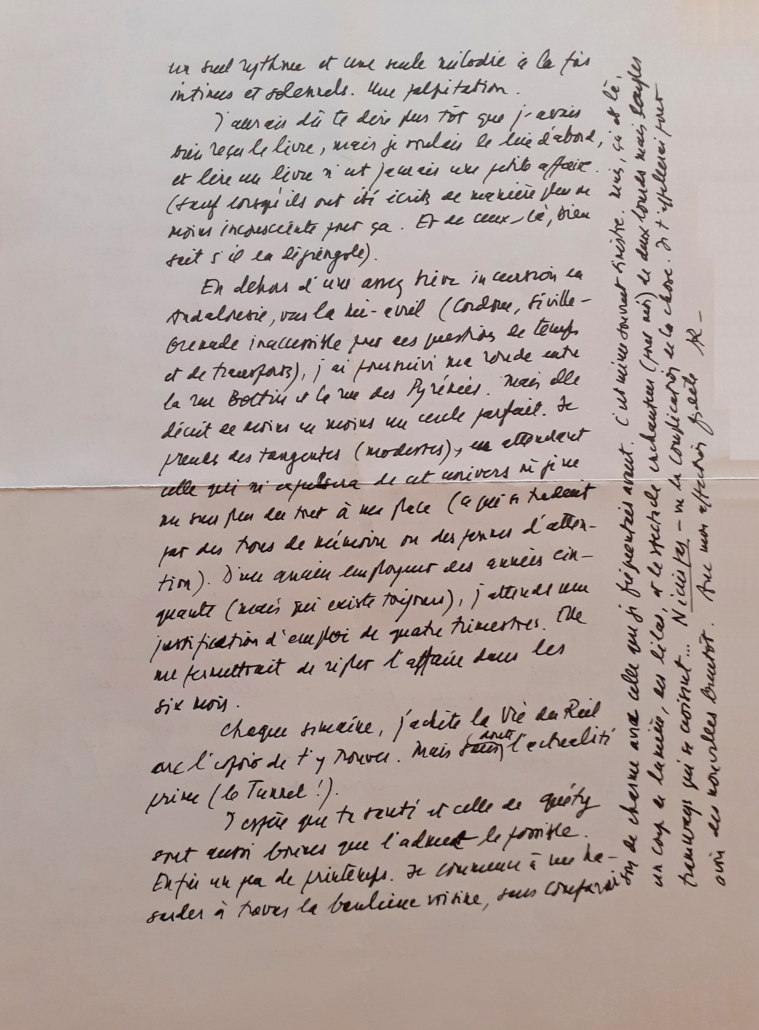 un seul rythme et une seule mélodie à la fois
intimes et solennels. Une palpitation.
J'aurais dû te dire plus tôt que j'avais
bien reçu le livre, mais je voulais le lire d'abord,
et lire un livre n'est jamais une petite affaire.
(Sauf lorsqu'ils ont été écrits de manière plus ou
moins inconsciente pour ça. Et de ceux-là, bien
sait s'il en dégringole).
En dehors d'une assez brève incursion en
Andalousie, vers la mi-avril (Cordoue, Séville –
Grenade inaccessible pour des questions de temps
et de transports), j'ai poursuivi ma ronde entre
la rue Bottin et la rue des Pyrénées. Mais elle
décrit de moins en moins un cercle parfait. Je
prends des tangentes (modestes), en attendant
celle qui m'expulsera de cet univers où je ne
me sens plus du tout à ma place (ce qui se traduit
par des trous de mémoire ou des pannes d'atten-
tion). D'un ancien employeur des années cin-
quante (mais qui existe toujours), j'attends une
justification d'emploi de quatre trimestres. Elle
me permettrait de régler l'affaire dans les
six mois.
Chaque semaine, j'achète la Vie du Rail
avec l'espoir de t'y trouver. Mais sans doute l'actualité
prime (le Tunnel !).
J'espère que ta santé et celle de
sont aussi bonnes que l'admet le possible.
Enfin un peu de printemps. Je commence à me ha-
sarder à travers la banlieue voisine, sans comparai-
son de charme avec celle que j'ai fréquentée avant. C'est même souvent sinistre. Mais, çà et là,
un coup de lumière, des lilas, et le spectacle enchanteur (pour moi) de deux lourds mais souples
tramways qui se croisent... N'écris pas – vu la complication de la chose. Je t'appellerai pour
avoir des nouvelles bientôt. Avec mon affection fidèle R–